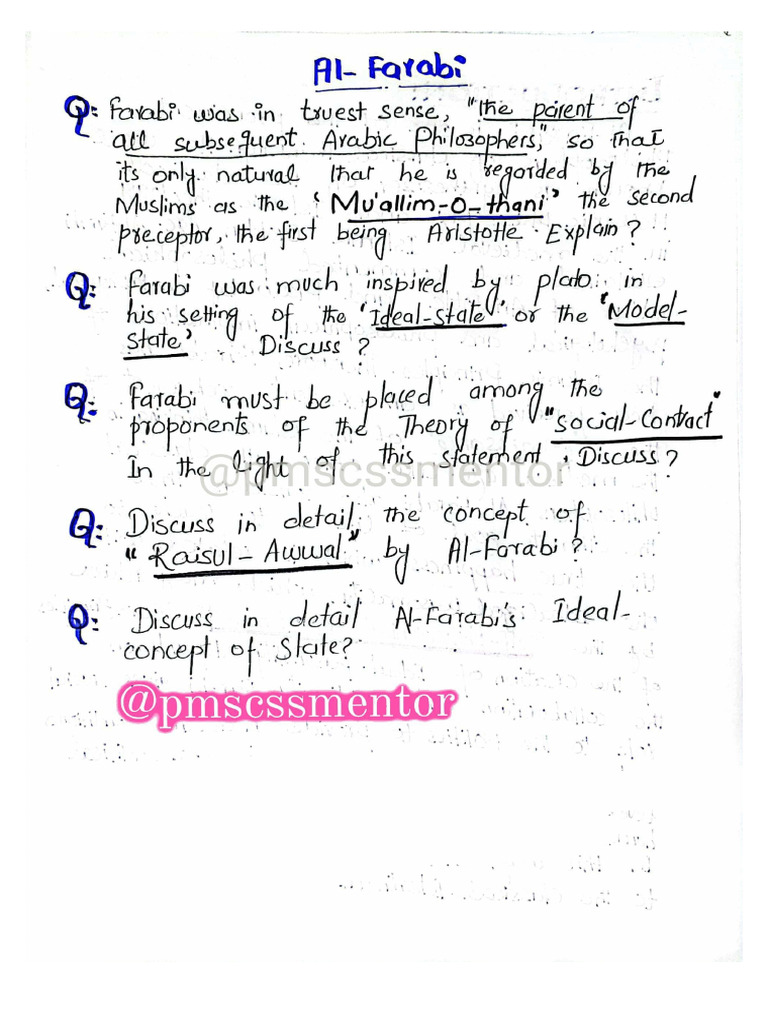 Al-Farabi
Q: Farabi was in truest sense, "the parent of
all subsequent Arabic Philosophers," so that
its only natural that he is regarded by the
Muslims as the 'Mu'allim-o-thani' the second
preceptor, the first being Aristotle. Explain?
Q: Farabi was much inspired by plato in
his setting of the 'Ideal-state' or the 'Model-
state' Discuss?
Q: Farabi must be placed among the
proponents of the Theory of "Social-Contract"
In the light of this statement, Discuss?
@pmscssmentor
Q: Discuss in detail the concept of
"Raisul-Awwal" by Al-Farabi?
Q: Discuss in detail Al-Farabi's Ideal-
concept of State?
@pmscssmentor